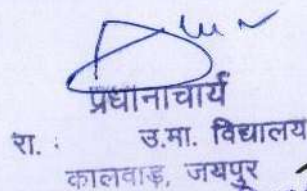 प्रधानाचार्य
रा. उ.मा. विद्यालय
कालवाड़, जयपुर